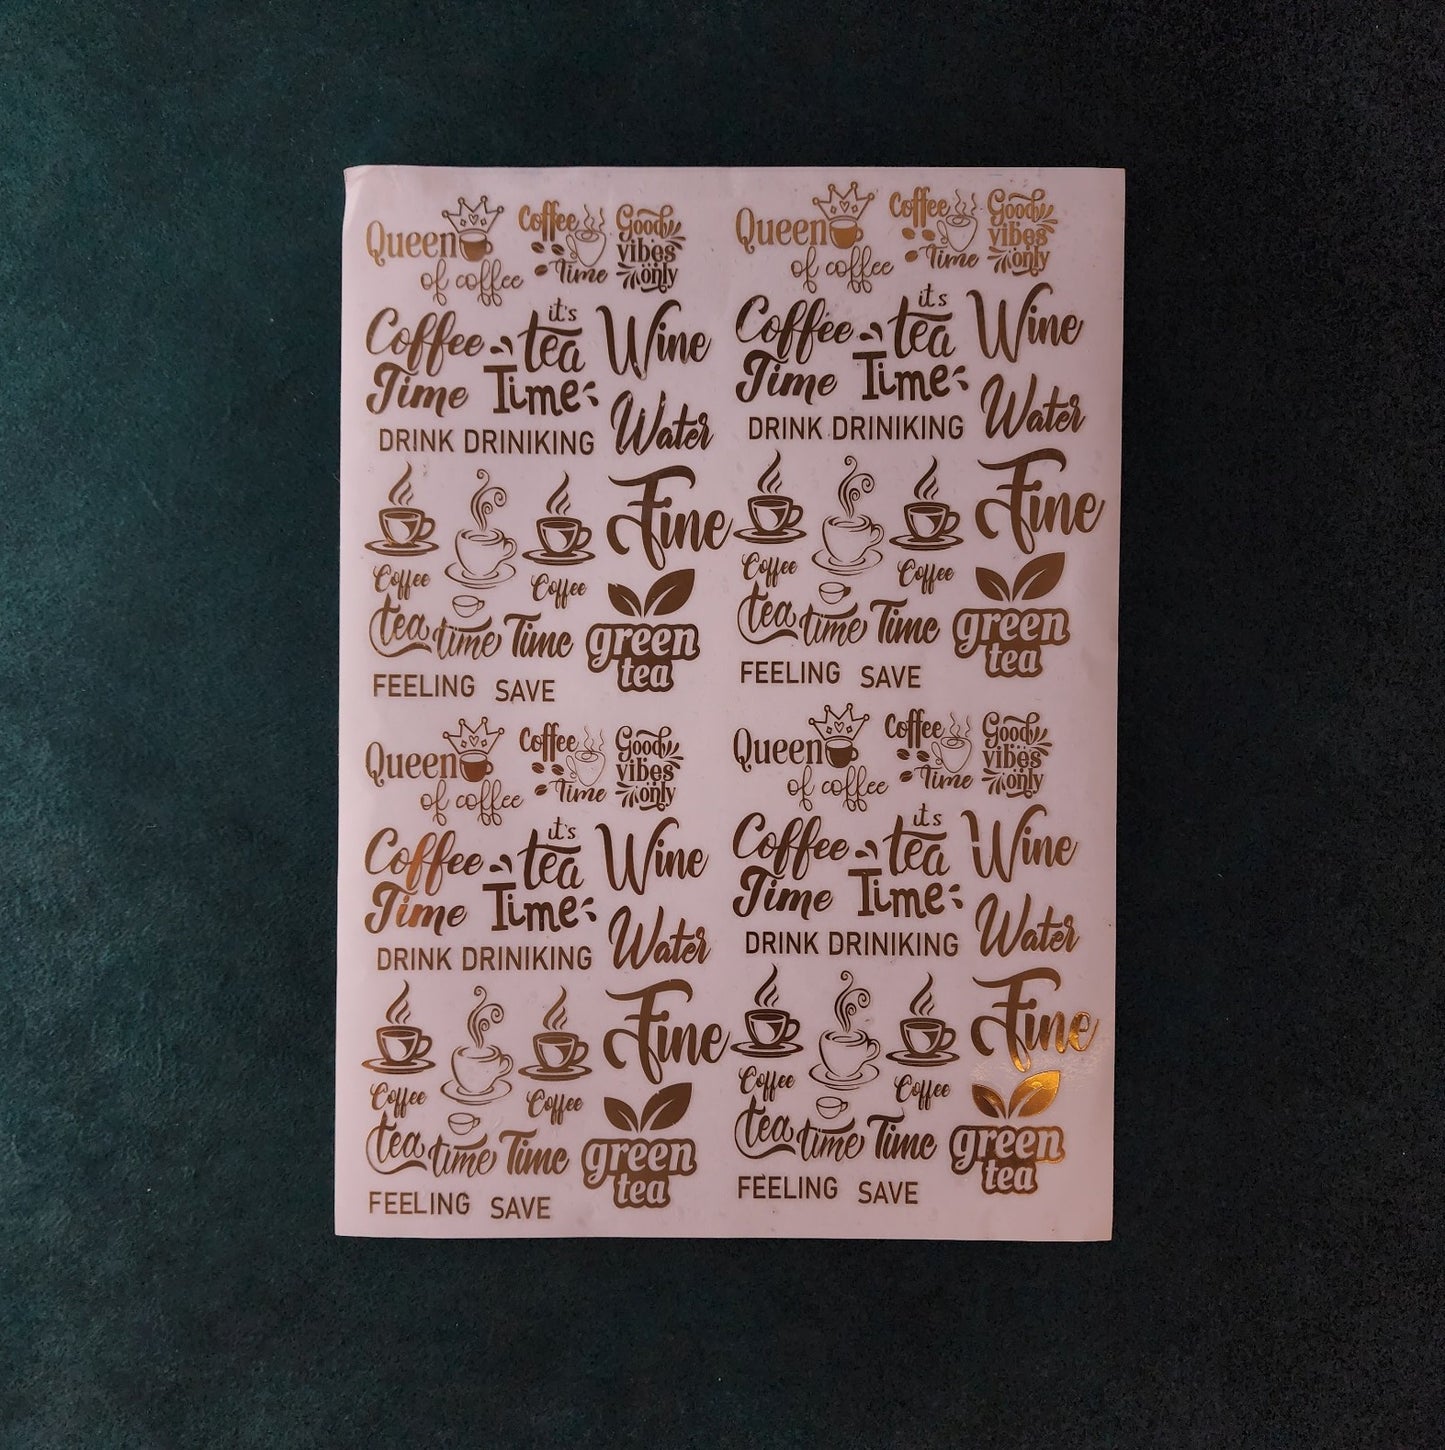 Queen of coffee
Coffee Time
Good vibes only
Coffee Time
it's tea Time
Wine
Water
DRINK DRINIKING
Fine
Coffee
Coffee
tea time Time
green tea
FEELING SAVE
Queen of coffee
Coffee Time
Good vibes only
Coffee Time
it's tea Time
Wine
Water
DRINK DRINIKING
Fine
Coffee
Coffee
tea time Time
green tea
FEELING SAVE
Queen of coffee
Coffee Time
Good vibes only
Coffee Time
it's tea Time
Wine
Water
DRINK DRINIKING
Fine
Coffee
Coffee
tea time Time
green tea
FEELING SAVE
Queen of coffee
Coffee Time
Good vibes only
Coffee Time
it's tea Time
Wine
Water
DRINK DRINIKING
Fine
Coffee
Coffee
tea time Time
green tea
FEELING SAVE